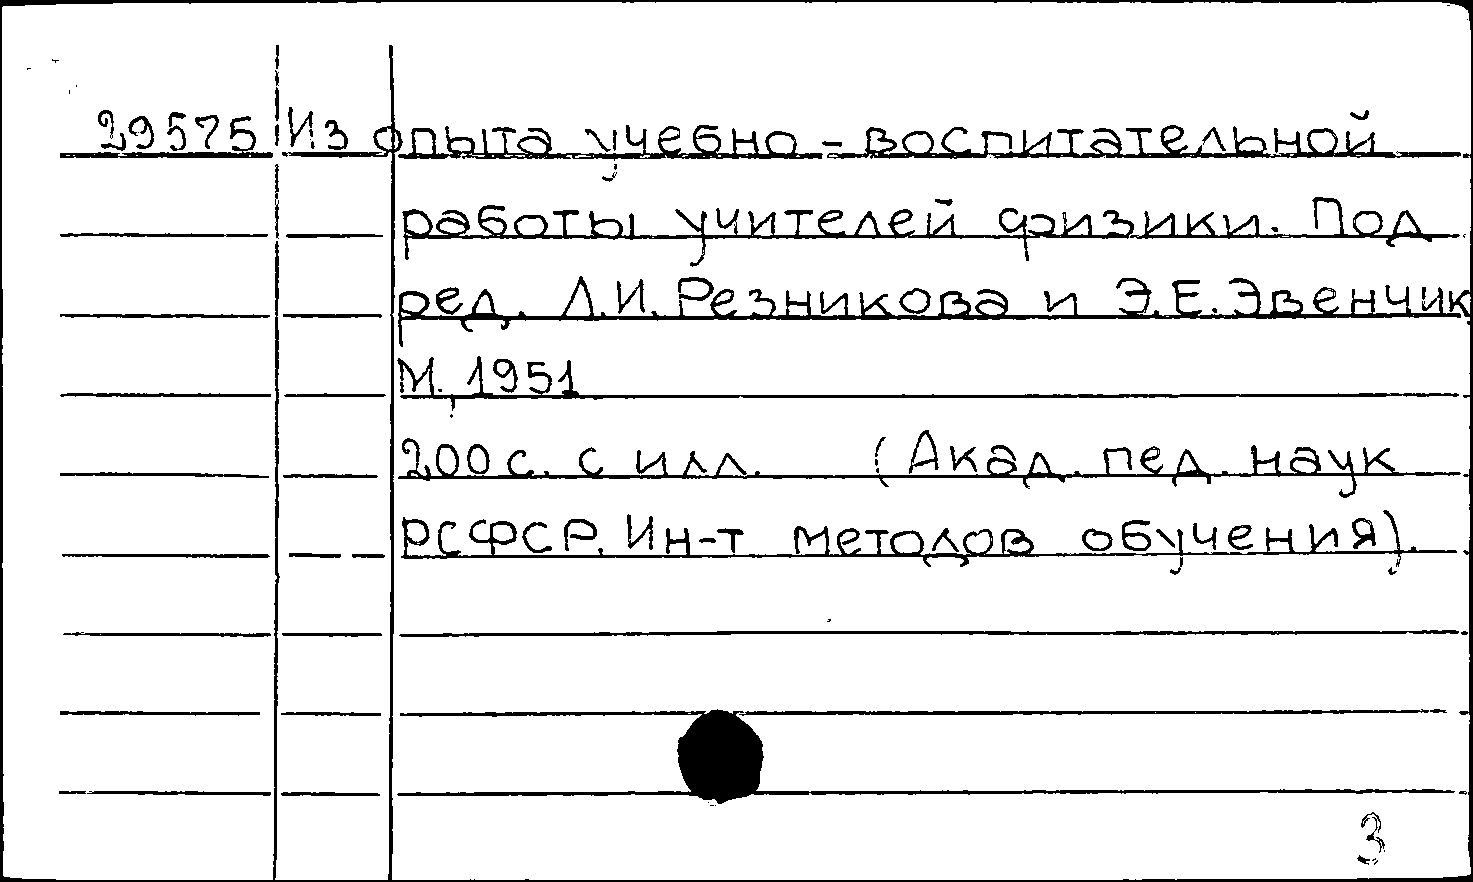 29575 Из опыта учебно-воспитательной
работы учителей физики. Под
ред. Л.И. Резникова и Э.Е. Эвенчик
М., 1951
200 с. с илл. (Акад. пед. наук
РСФСР. Ин-т методов обучения).
3